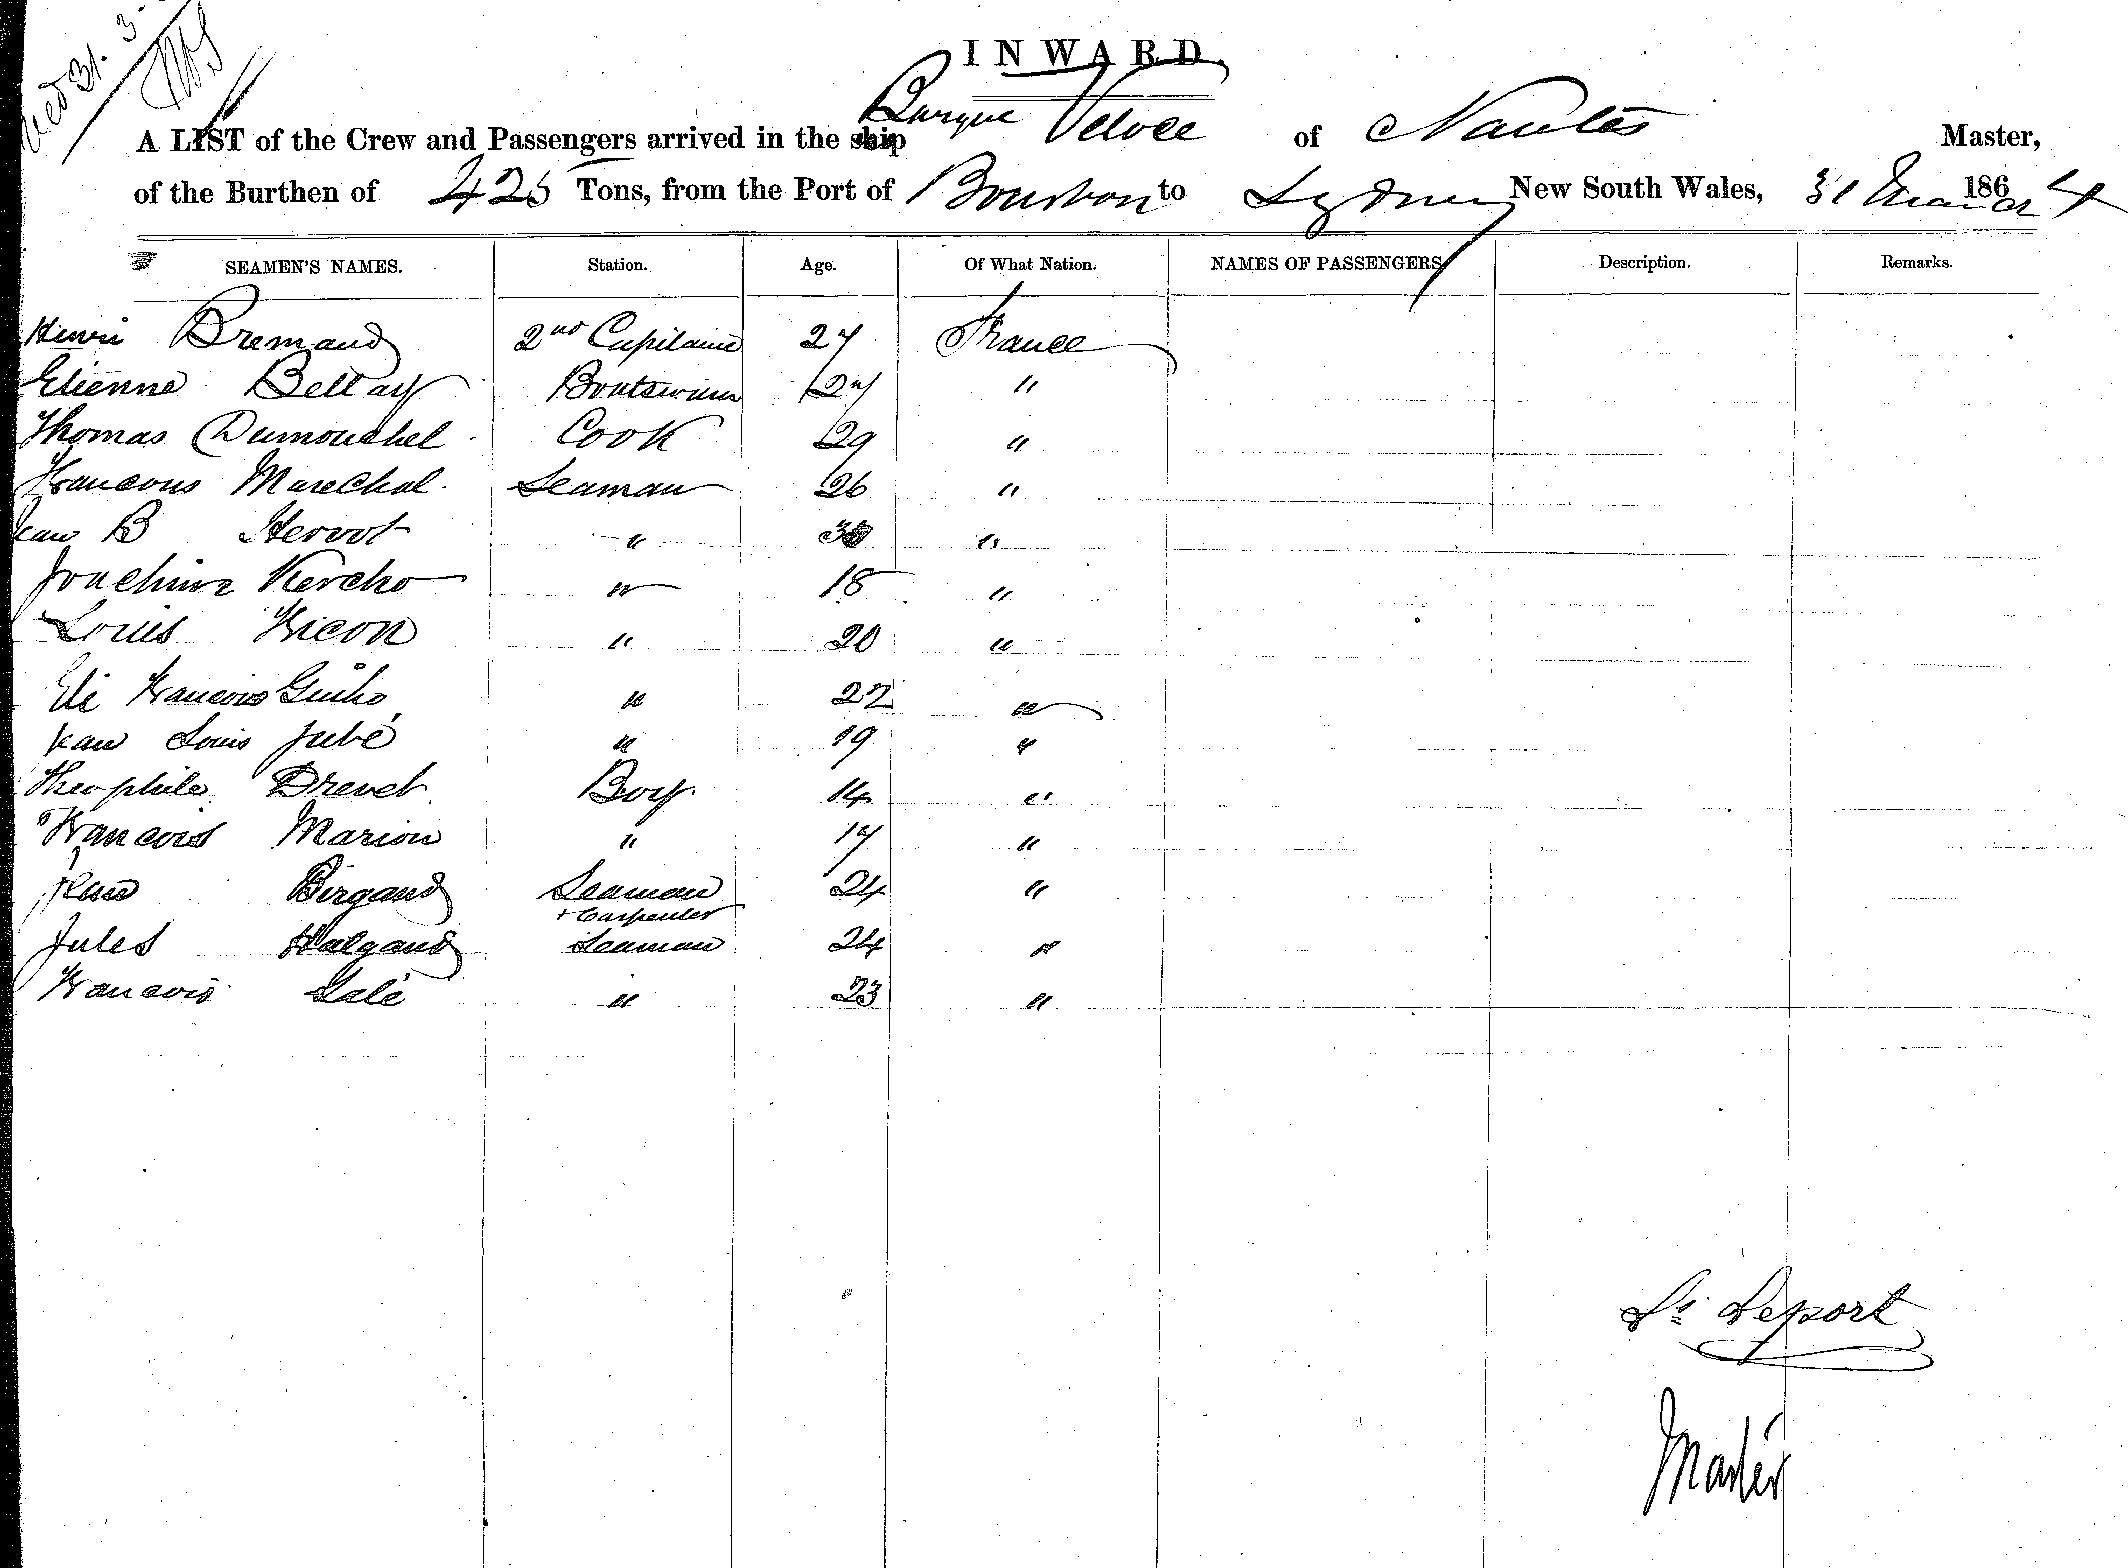 31. 3
INWARD
A LIST of the Crew and Passengers arrived in the ship Barque Veloce of Nantes Master,
of the Burthen of 425 Tons, from the Port of Bourbon to Sydney New South Wales, 31 March 1864
SEAMEN'S NAMES. Station. Age. Of What Nation. NAMES OF PASSENGERS Description. Remarks.
Henri Bremaud 2nd Capitaine 27 France
Etienne Bellay Boatswain 27 "
Thomas Dumouchel Cook 29 "
Francois Marechal Seaman 26 "
Jean B Hervot " "
Joachim Kercho " 18 "
Louis Ricon " 20 "
Eli Francois Guiho " 22 "
Jean Louis Jubé " 19 "
Theophile Drevet Boy 14 "
Francois Marion " 17 "
Jean Birgand Seaman 24 "
+ Carpenter
Jules Halgand Seaman 24 "
Francois Galé " 23 "
Ls Leport
Master